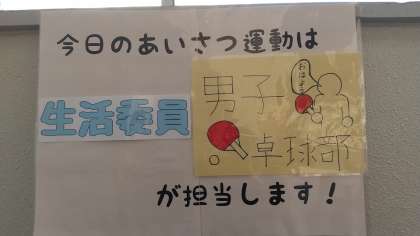 今日のあいさつ運動は
生活委員
男子
卓球部
が担当します！